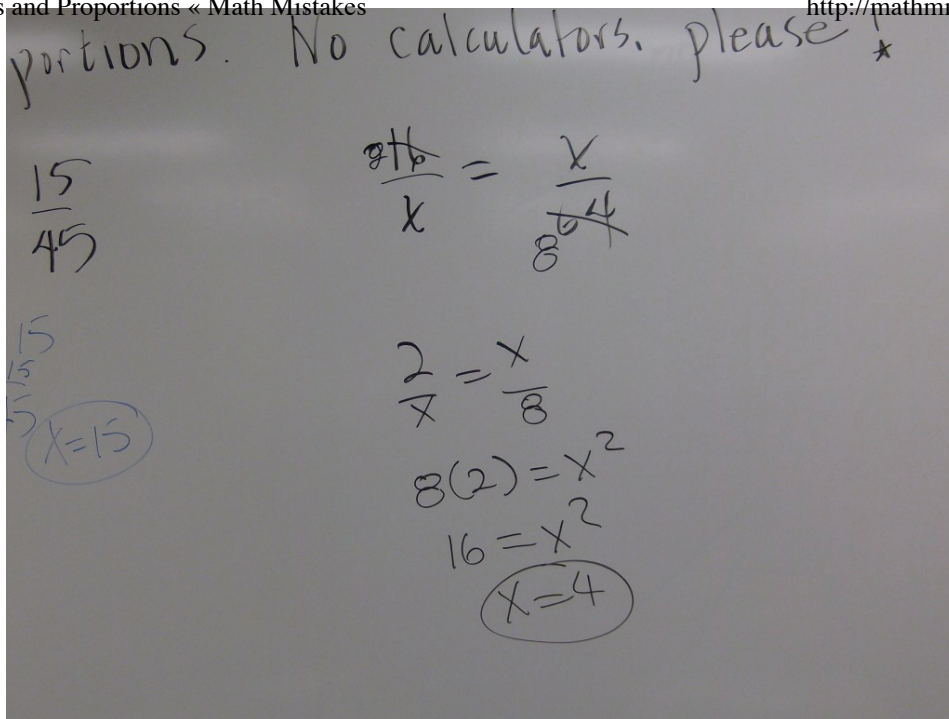 s and Proportions « Math Mistakes http://mathmi
portions. No calculators, please!
*
15
45
2 16 = x
x 8 64
15
15
15
x=15
2 = x
x 8
8(2) = x²
16 = x²
x=4